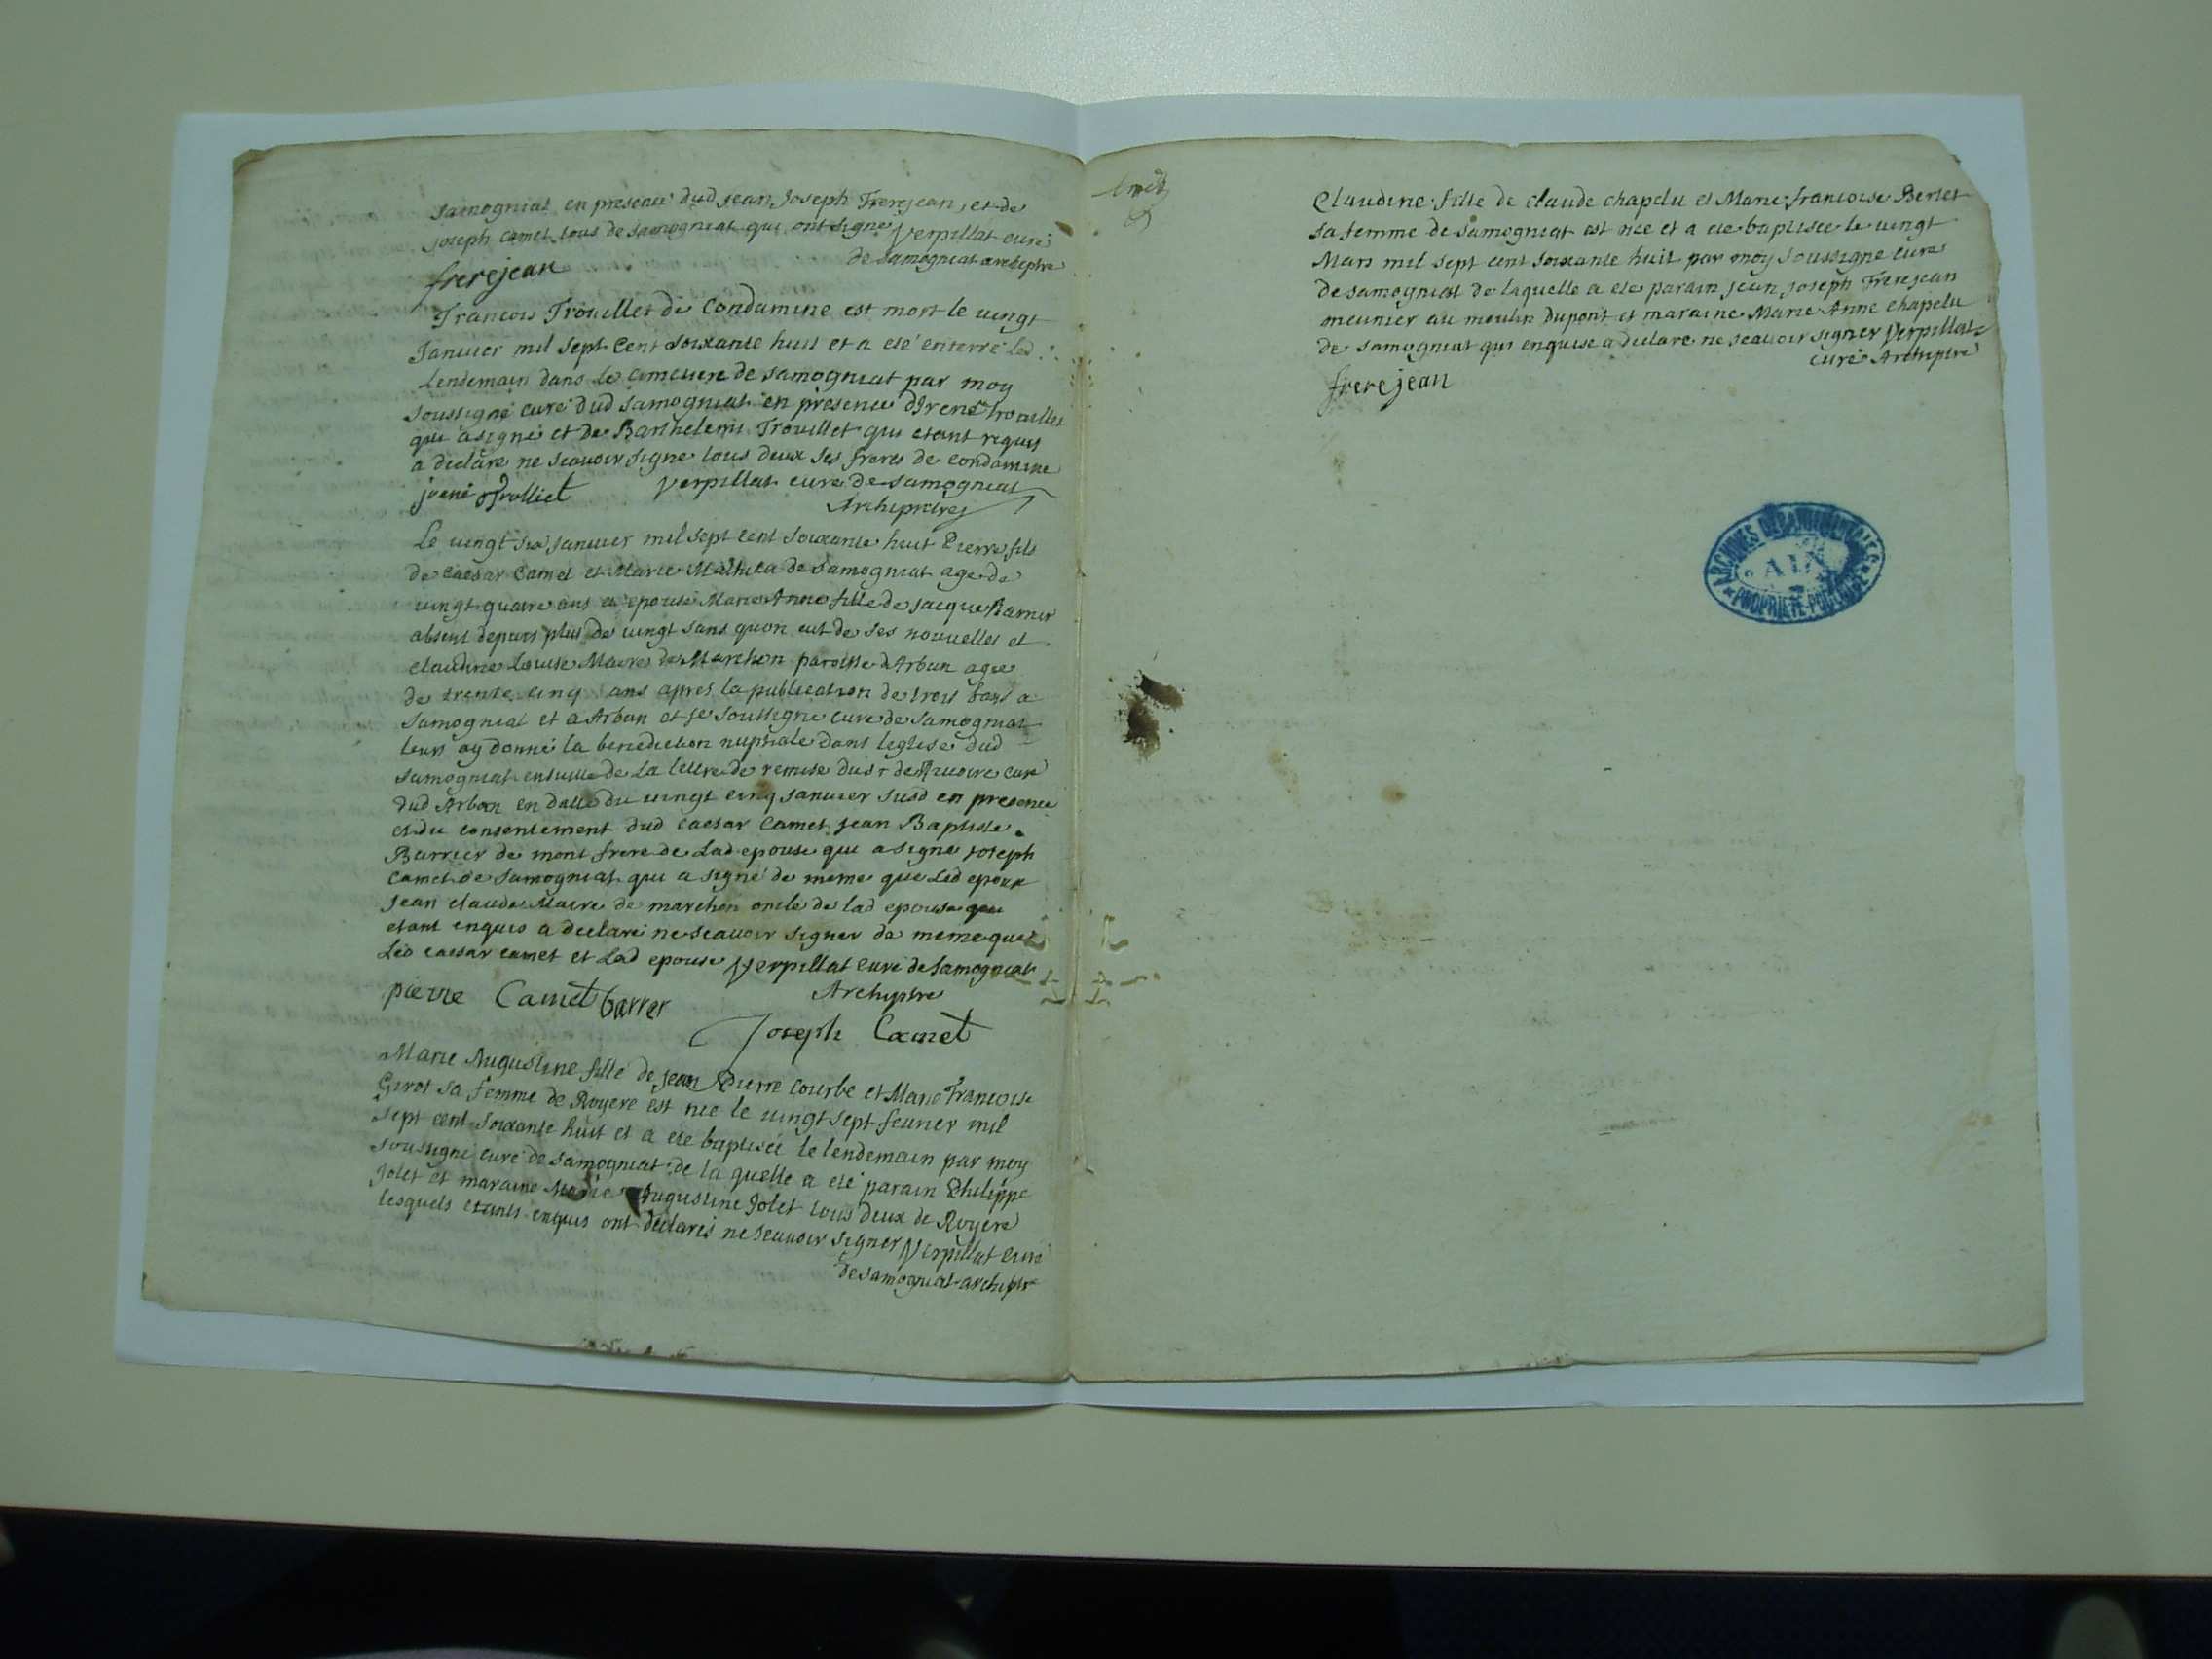 samogniat en presence dud jean Joseph Frerejean, et de
joseph Camet tous de samogniat qui ont signé Verpillat curé
de samogniat archiptre
frerejean
Francois Trouillet de Condamine est mort le vingt
Janvier mil sept Cent soixante huit et a eté enterré led
lendemain dans le cimetiere de samogniat par moy
soussigné curé dud samogniat en presence d'Irené trouillet
qui a signé et de Barthelemi Trouillet qui etant requis
a declaré ne scavoir signé tous deux ses freres de condamine
Trolliet Verpillat curé de samogniat
Archipretre
Le vingt six janvier mil sept cent soixante huit Pierre fils
de Caesar Camet et Marie de Samogniat age de
vingt quatre ans a epousé Marie Anne fille de jacque
absent depuis plus de vingt sans quon eut de ses nouvelles et
claudine Louise Maire de Marchon paroisse d'Arban agee
de trente cinq ans apres la publication de trois bans a
Samogniat et a Arban et je soussigné curé de Samogniat
leurs ay donné la benediction nuptiale dans leglise dud
samogniat ensuitte de la lettre de remise du sr de curé
dud Arban en datte du vingt cinq janvier susd en presence
et du consentement dud caesar Camet jean Baptiste
Barrier de mont frere de Lad epouse qui a signé joseph
Camet de samogniat qui a signé de meme que Led epoux
jean claude Maire de marchon oncle de lad epouse qui
etant enquis a declaré ne scavoir signer de meme que
Led caesar camet et Lad epouse Verpillat curé de Samogniat
Archyptre
pierre Camet barrer
Joseph Camet
Marie Augustine fille de jean Pierre Courbe et Marie Francoise
Girot sa femme de Royere est née le vingt sept fevrier mil
sept cent soixante huit et a eté baptisée le lendemain par moy
soussigné curé de samogniat de la quelle a eté parain Philippe
Jolet et maraine Marie Augustine Jolet tous deux de Royere
lesquels etants enquis ont declarés ne scavoir signer Verpillat curé
de samogniat archiptre
Claudine fille de claude chapelu et Marie francoise Berlet
sa femme de samogniat est née et a eté baptisée le vingt
Mars mil sept cent soixante huit par moy soussigné curé
de samogniat de laquelle a eté parain jean joseph Frerejean
meunier au moulin Dupont et maraine Marie Anne chapelu
de samogniat qui enquise a declaré ne scavoir signer Verpillat
curé Archiptre
frerejean
ARCHIVES DEPARTEMENTALES
AIN
PROPRIETE PUBLIQUE